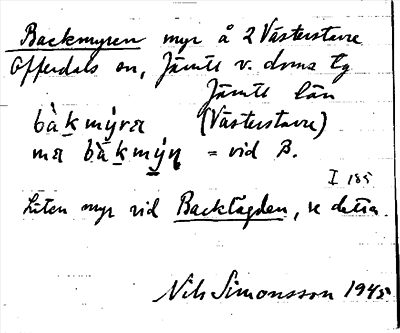 Backmyren myr å 2 Västerstavre
Offerdals sn, Jämtl v. doms tg
Jämtl län
bàkmýrɐ (Västerstavre)
ma bàkmýn = vid B.
I 185
Liten myr vid Backtägden, se detta.
Nils Simonsson 1945